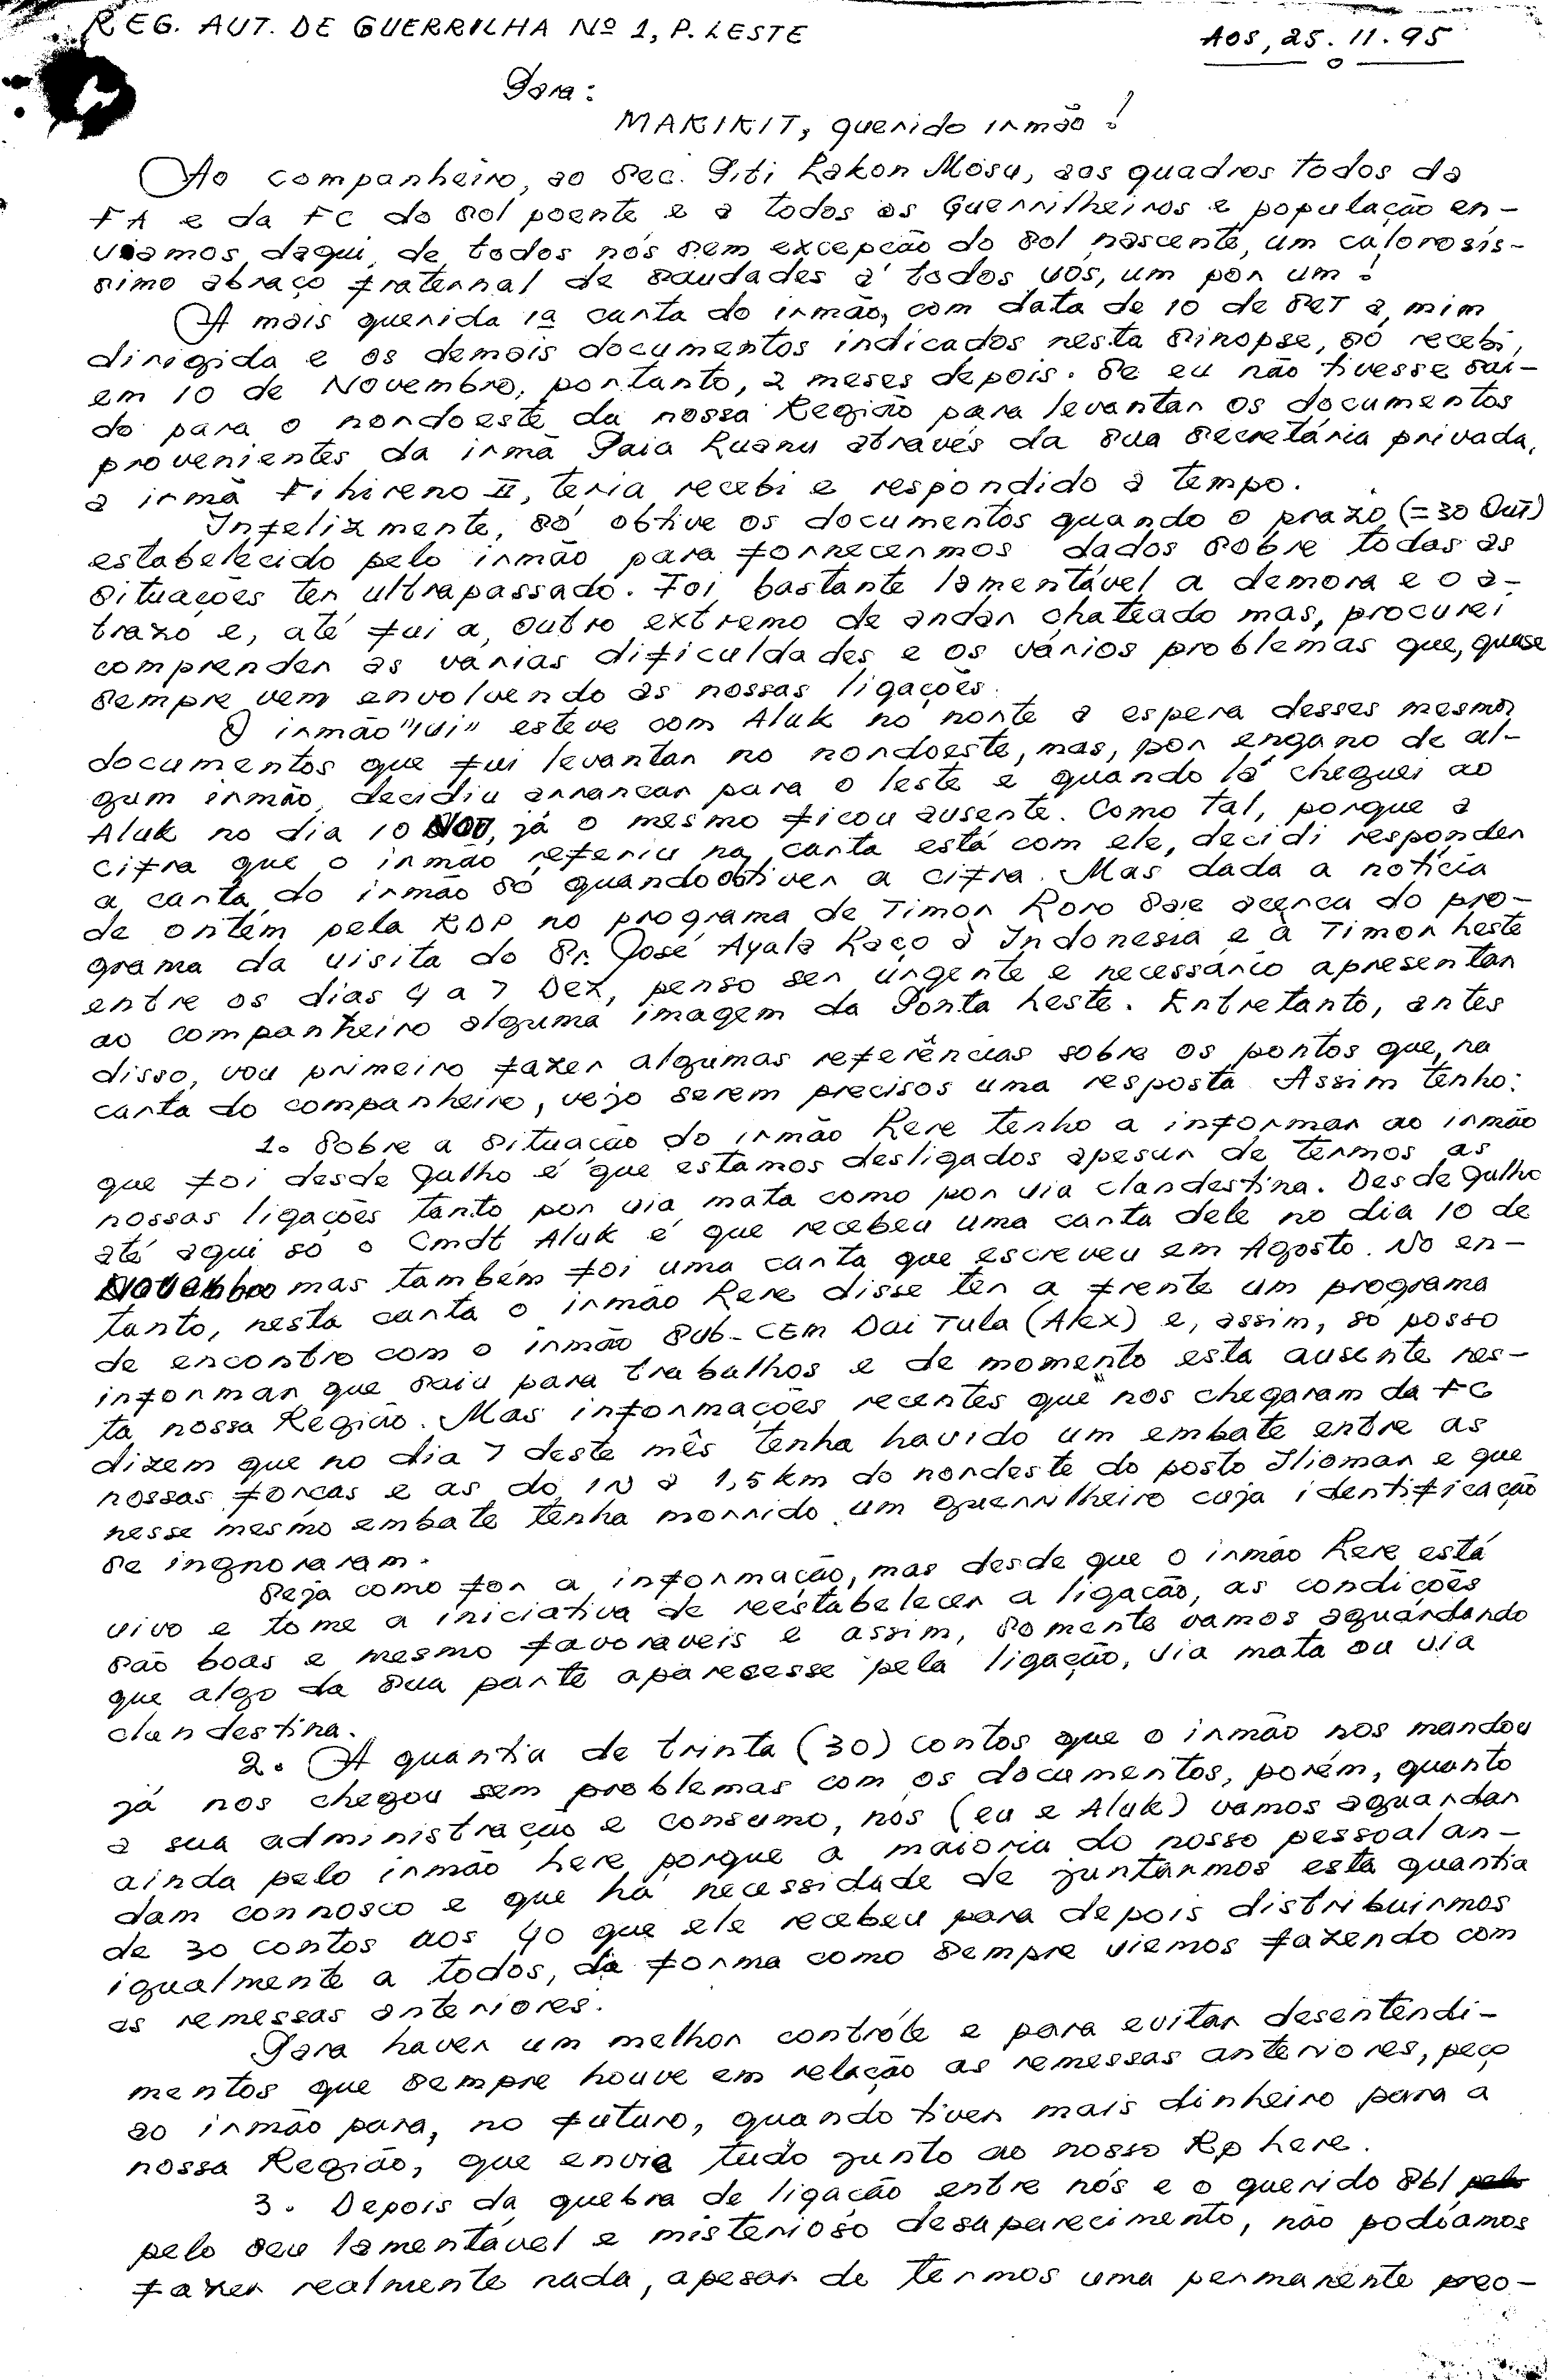 REG. AUT. DE GUERRILHA Nº 1, P. LESTE
AOS, 25. 11. 95
Para:
MAKIKIT, querido irmão!
Ao companheiro, ao Sec. Piti Lakon Mosu, aos quadros todos da
FA e da FC do Sol poente e a todos os Guerrilheiros e população en-
viamos daqui, de todos nós sem excepção do Sol nascente, um calorosís-
simo abraço fraternal de saudades a todos vós, um por um!
A mais querida 1ª carta do irmão, com data de 10 de SET a mim
dirigida e os demais documentos indicados nesta sinopse, só recebi,
em 10 de Novembro, portanto, 2 meses depois. Se eu não tivesse saí-
do para o nordoeste da nossa Região para levantar os documentos
provenientes da irmã Paia Luanu através da sua secretária privada,
a irmã Fihireno II, teria recebi e respondido a tempo.
Infelizmente, só obtive os documentos quando o prazo (=30 OUT)
estabelecido pelo irmão para fornecermos dados sobre todas as
situações ter ultrapassado. Foi bastante lamentável a demora e o a-
trazo e, até fui a outro extremo de andar chateado mas, procurei
comprender as várias dificuldades e os vários problemas que, quase
sempre vem envolvendo as nossas ligações.
O irmão "Ui" esteve com Aluk no norte a espera desses mesmos
documentos que fui levantar no nordoeste, mas, por engano de al-
gum irmão, decidiu arrancar para o leste e quando lá cheguei ao
Aluk no dia 10 NOV, já o mesmo ficou ausente. Como tal, porque a
cifra que o irmão referiu na carta está com ele, decidi responder
a carta do irmão só quando obtiver a cifra. Mas dada a notícia
de ontem pela RDP no programa de Timor Loro Sae acerca do pro-
grama da visita do Sr. José Ayala Laço à Indonesia e a Timor Leste
entre os dias 4 a 7 Dez, penso ser urgente e necessário apresentar
ao companheiro alguma imagem da Ponta Leste. Entretanto, antes
disso, vou primeiro fazer algumas referências sobre os pontos que, na
carta do companheiro, vejo serem precisos uma resposta. Assim tenho:
1. Sobre a situação do irmão Lere tenho a informar ao irmão
que foi desde Julho é que estamos desligados apesar de termos as
nossas ligações tanto por via mata como por via clandestina. Desde Julho
até aqui só o Cmdt Aluk é que recebeu uma carta dele no dia 10 de
Novembro mas também foi uma carta que escreveu em Agosto. No en-
tanto, nesta carta o irmão Lere disse ter a frente um programa
de encontro com o irmão Sub-CEM Dai Tula (Alex) e, assim, só posso
informar que saiu para trabalhos e de momento esta ausente nes-
ta nossa Região. Mas informações recentes que nos chegaram da FC
dizem que no dia 7 deste mês tenha havido um embate entre as
nossas forcas e as do IN a 1,5 km do nordeste do posto Iliomar e que
nesse mesmo embate tenha morrido um guerrilheiro cuja identificação
se ingnoraram.
Seja como for a informação, mas desde que o irmão Lere está
vivo e tome a iniciativa de reestabelecer a ligação, as condições
são boas e mesmo favoraveis e assim, somente vamos aguardando
que algo da sua parte aparecesse pela ligação, via mata ou via
clandestina.
2. A quantia de trinta (30) contos que o irmão nos mandou
já nos chegou sem problemas com os documentos, porém, quanto
a sua administração e consumo, nós (eu e Aluk) vamos aguardar
ainda pelo irmão Lere porque a maioria do nosso pessoal an-
dam connosco e que há necessidade de juntarmos esta quantia
de 30 contos aos 40 que ele recebeu para depois distribuirmos
igualmente a todos, da forma como sempre viemos fazendo com
as remessas anteriores.
Para haver um melhor contróle e para evitar desentendi-
mentos que sempre houve em relação as remessas anteriores, peço
ao irmão para, no futuro, quando tiver mais dinheiro para a
nossa Região, que envie tudo junto ao nosso Rp Lere.
3. Depois da quebra de ligação entre nós e o querido Sbl
pelo seu lamentável e misterioso desaparecimento, não podíamos
fazer realmente nada, apesar de termos uma permanente preo-